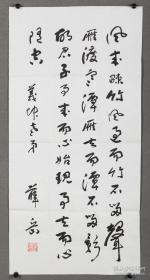 風来疎竹風過而竹不留聲
雁渡寒潭雁去而潭不留影
故君子事来而心始現事去而心
隨空
義 老弟
薛岳